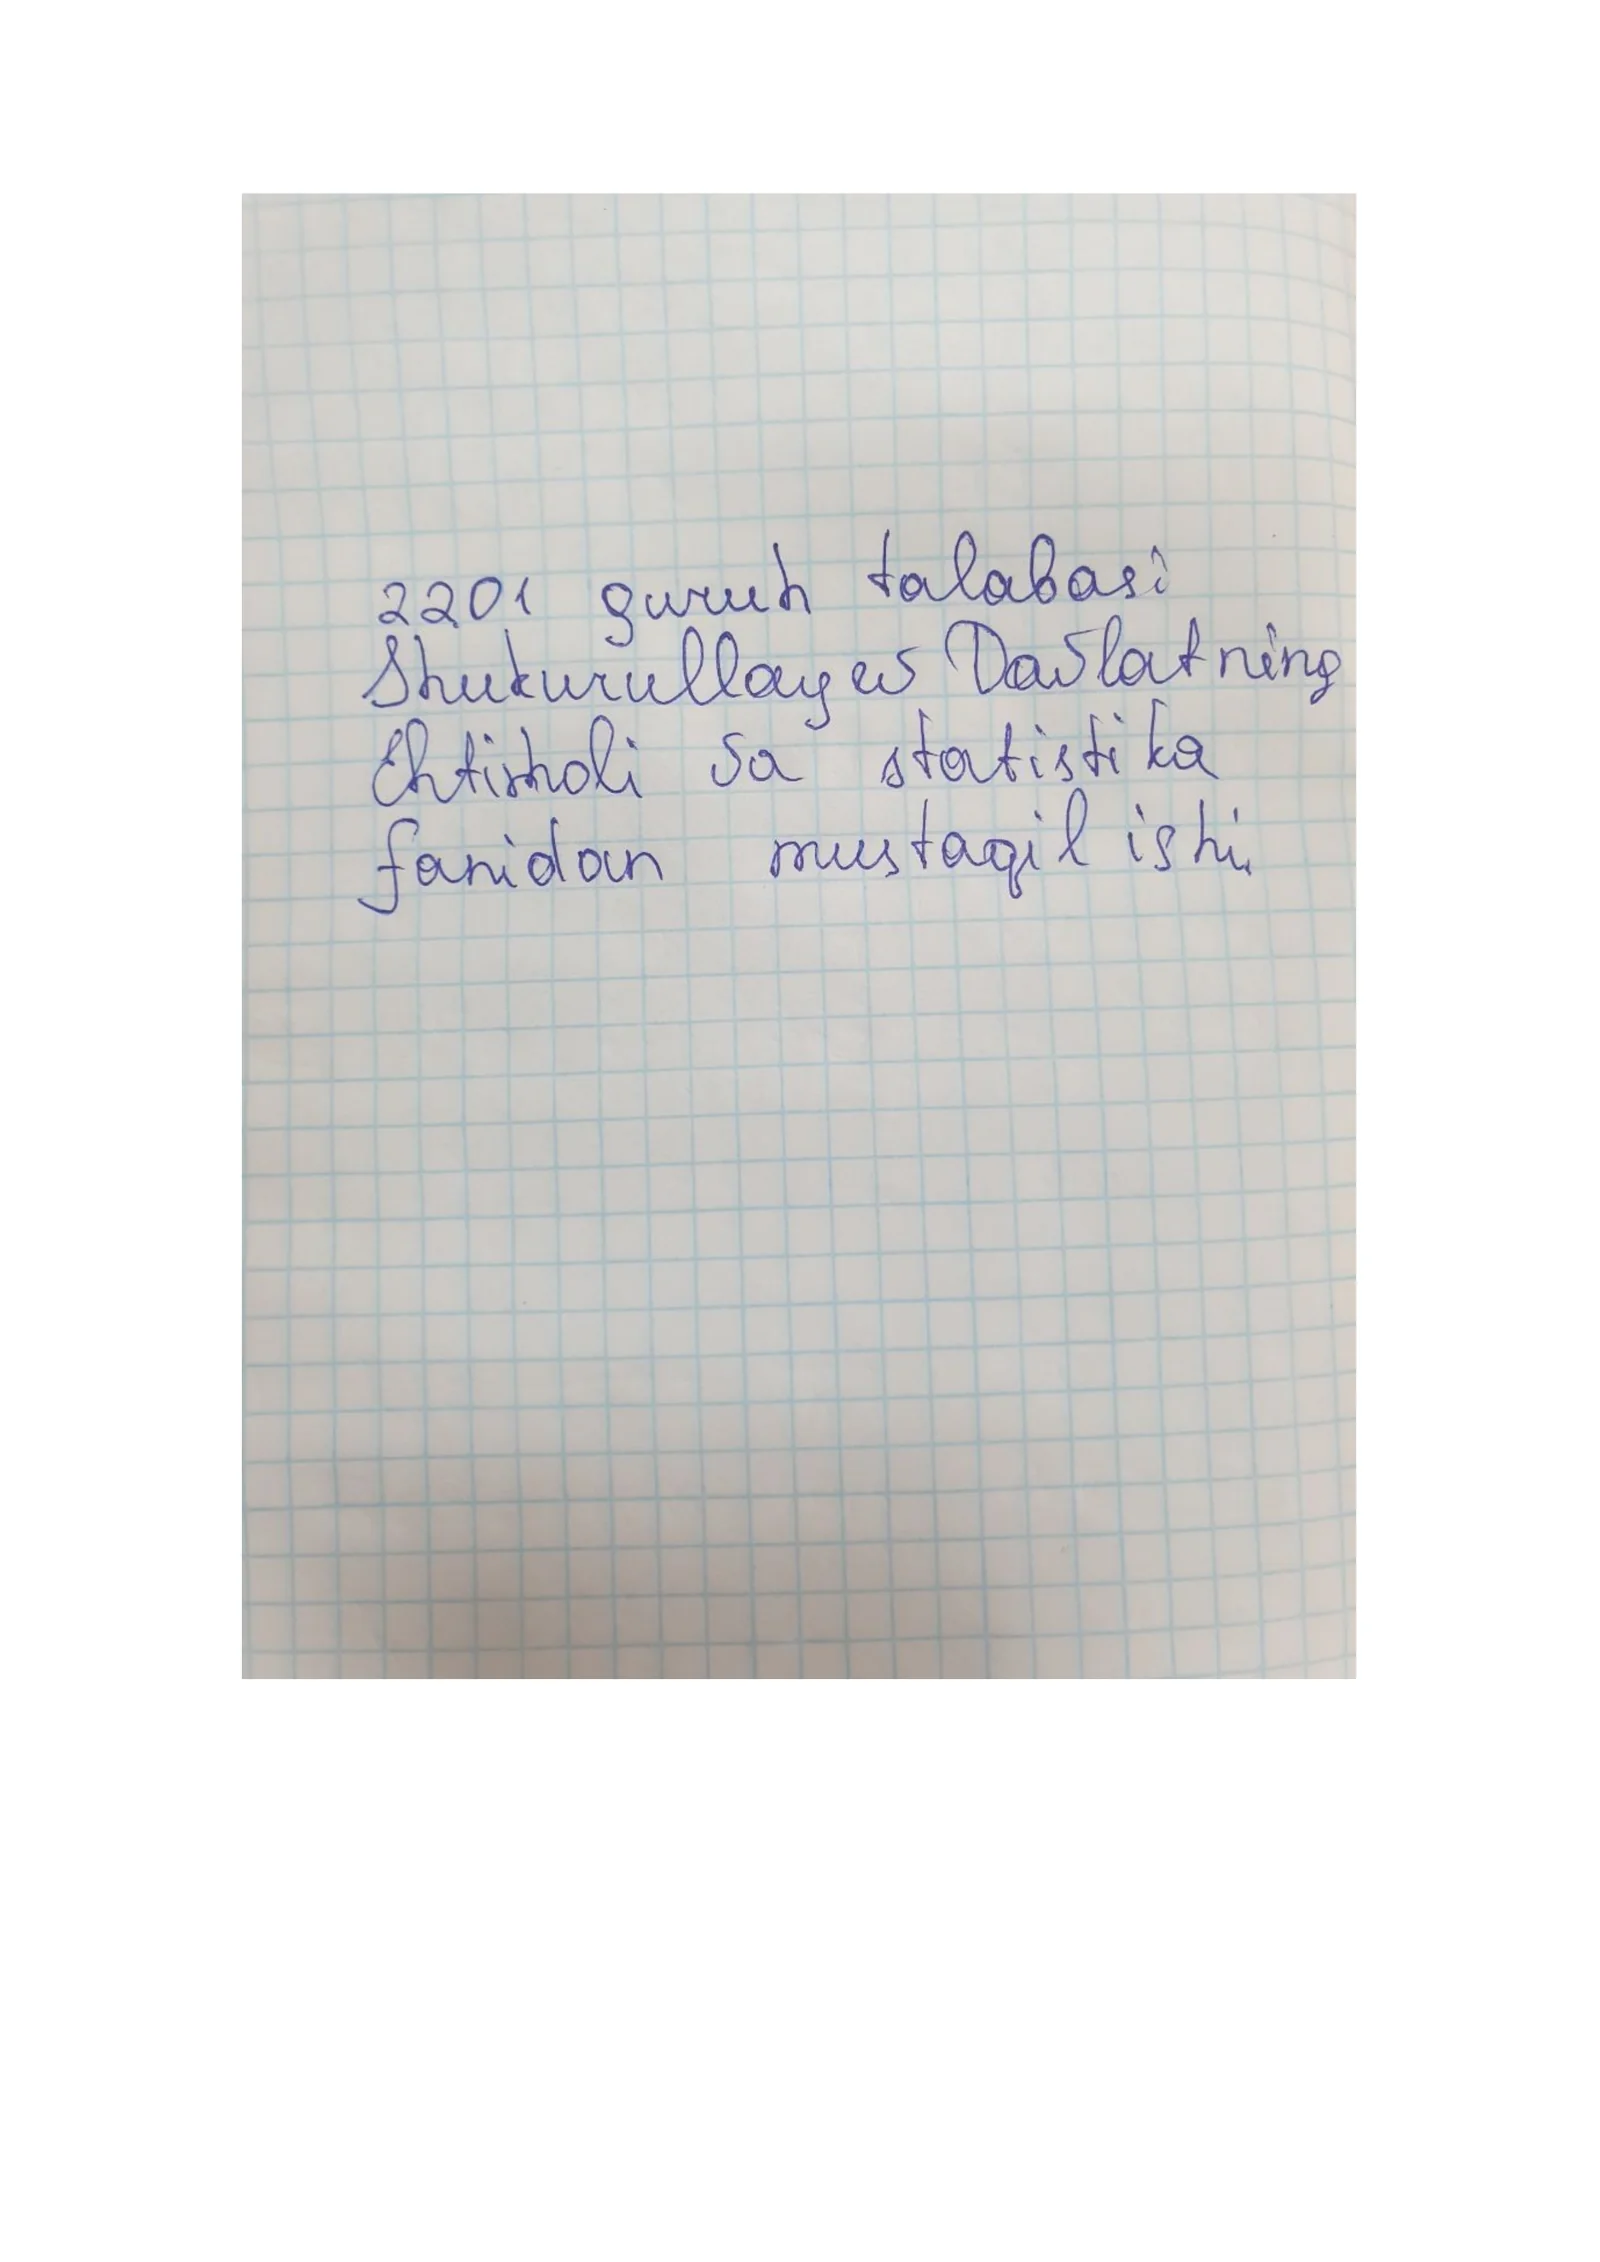 2201 guruh talabasi
Shukurullayev Davlatning
Ehtimoli va statistika
fanidan mustaqil ishi.